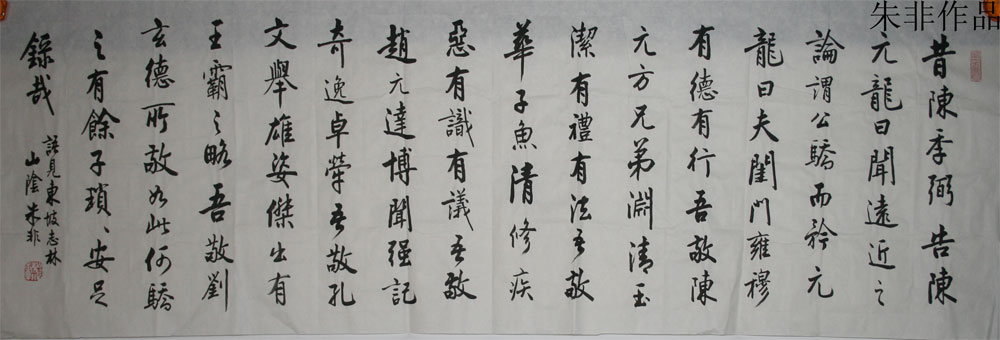 朱非作品
昔陳季弼告陳
元龍曰聞遠近之
論謂公驕而矜元
龍曰夫閨門雍穆
有德有行吾敬陳
元方兄弟淵清玉
潔有禮有法吾敬
華子魚清修疾
惡有識有議吾敬
趙元達博聞强記
奇逸卓犖吾敬孔
文舉雄姿傑出有
王霸之略吾敬劉
玄德所敬如此何驕
之有餘子瑣、安足
錄哉
見東坡志林
山陰朱非